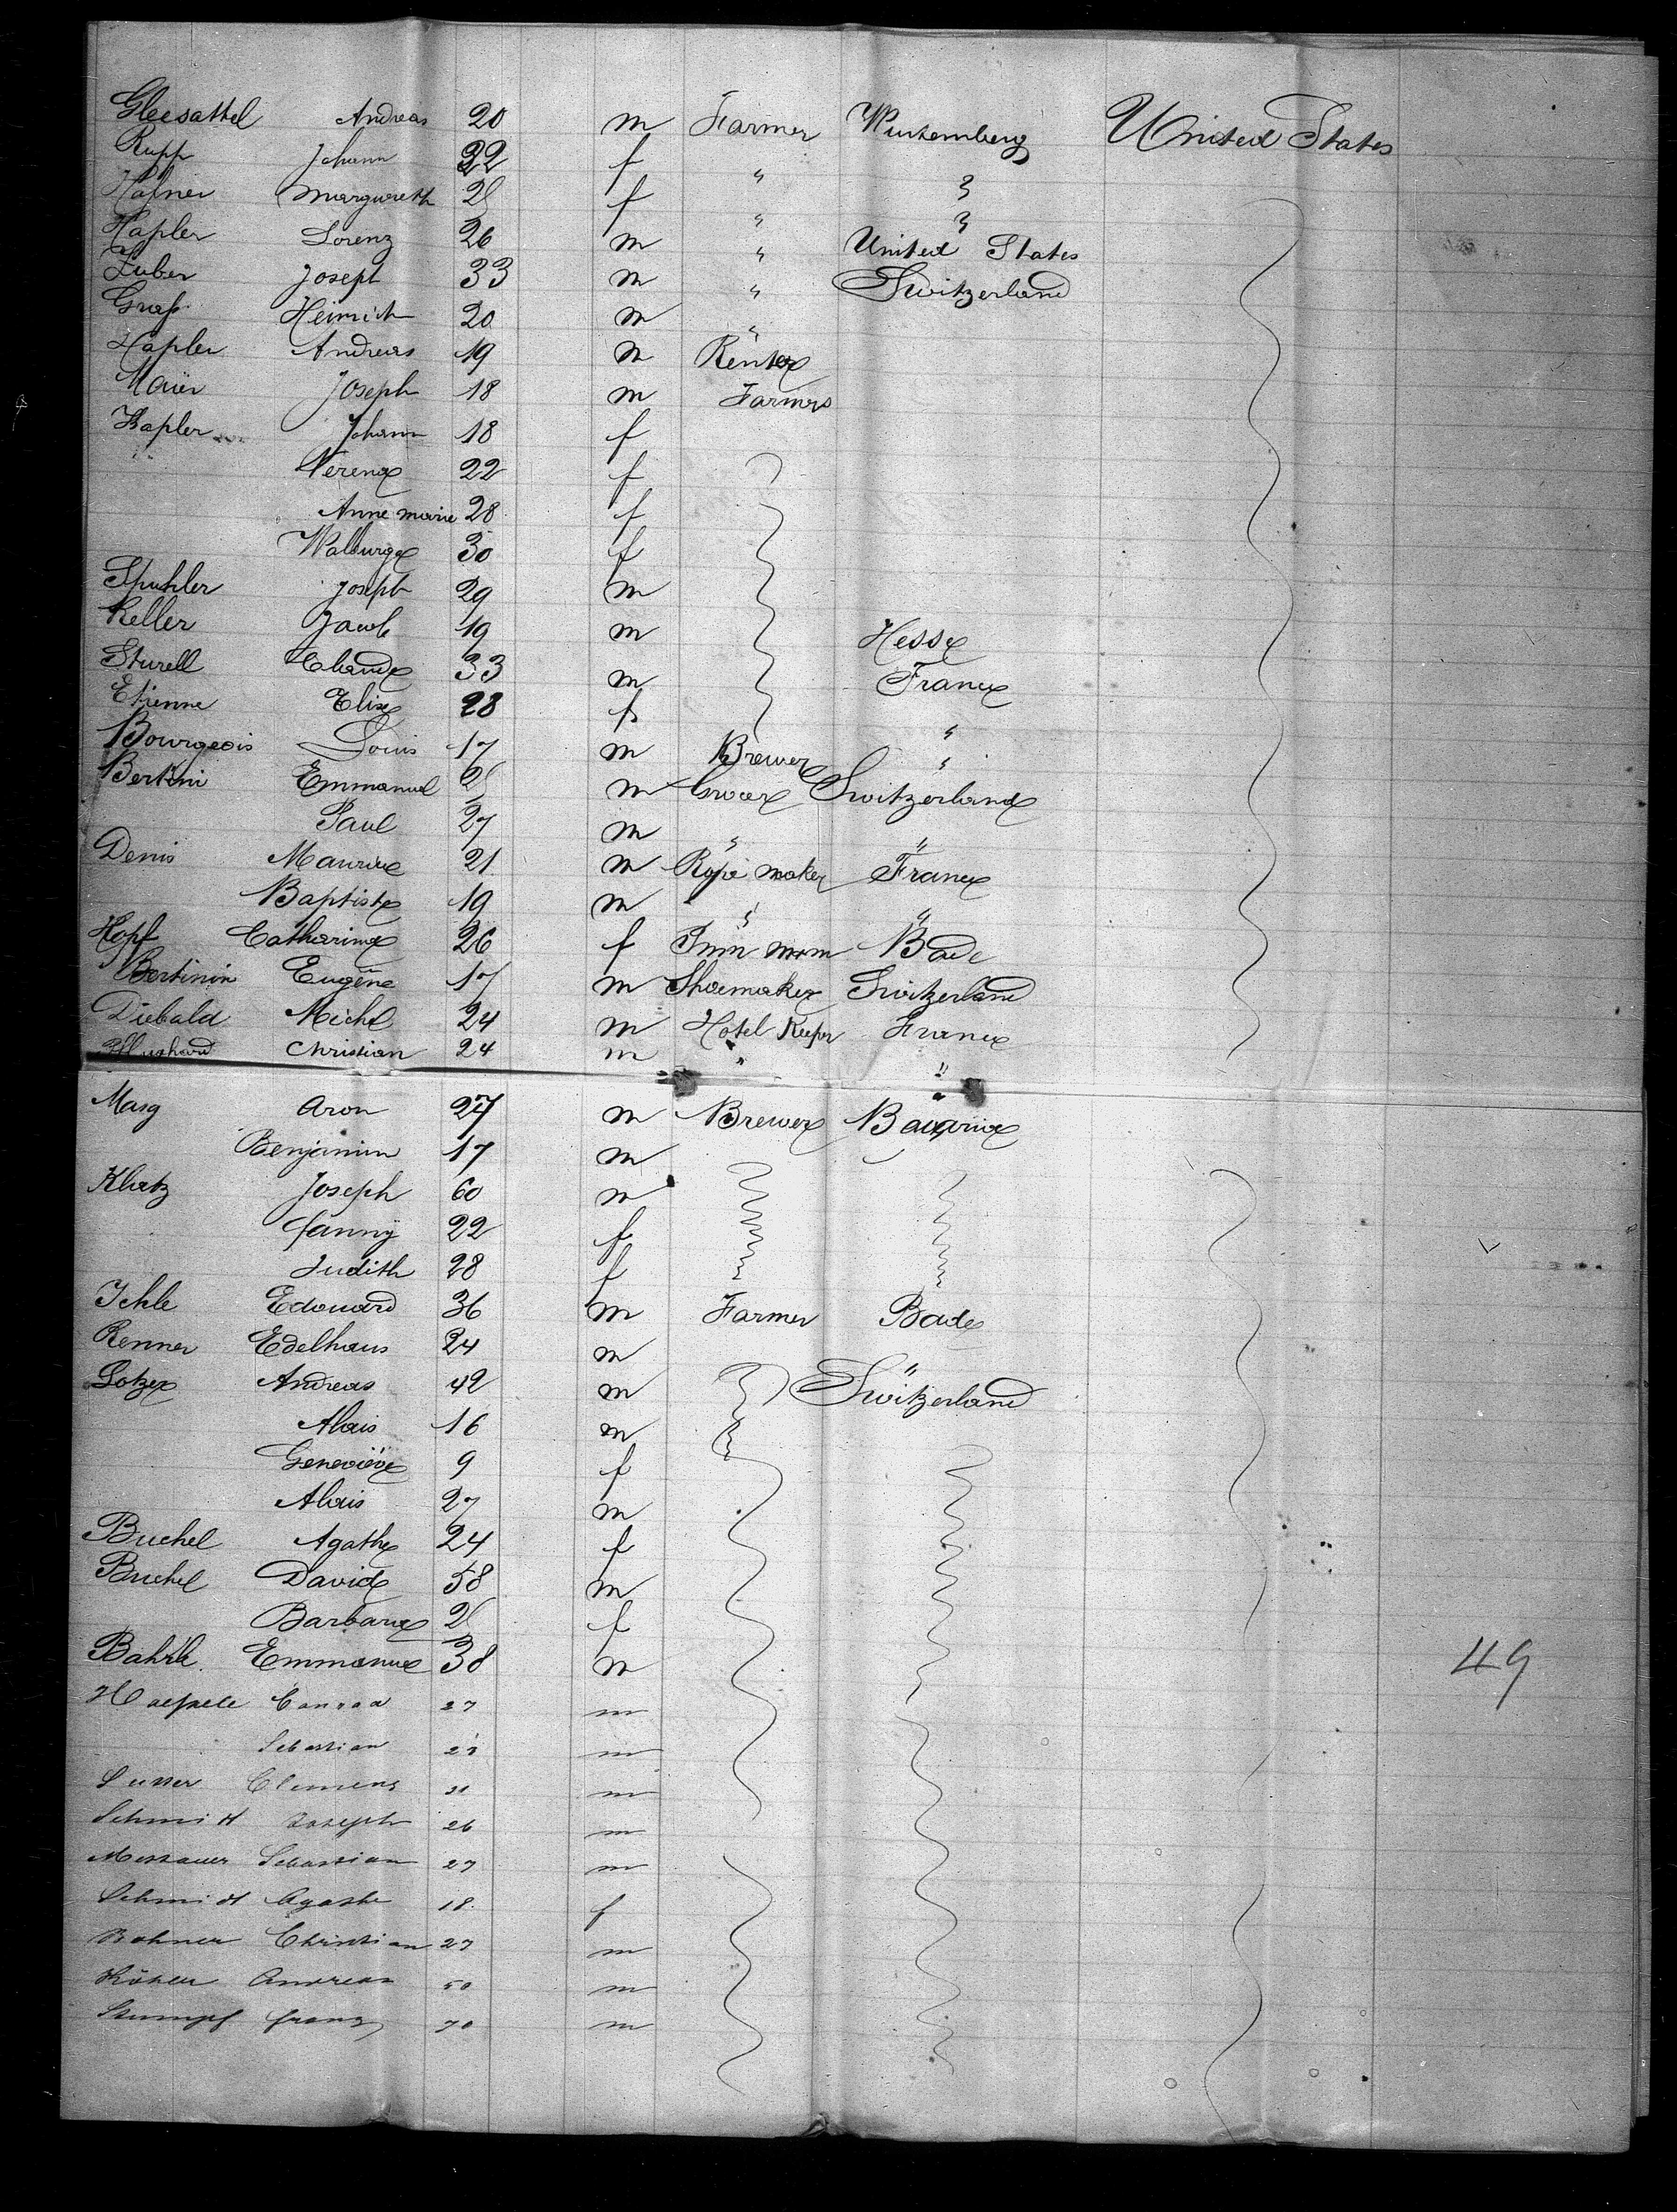 Gleesattel Andreas 20 m Farmer Wurtemberg United States
Rupp Johann 22 f "
Hafner Margareth 2 f "
Hapler Lorenz 26 m " United States
Zuber Joseph 33 m " Switzerland
Graf Heinrich 20 m "
Hapler Andreas 19 m Renter
Maier Joseph 18 m Farmers
Kapler Johann 18 f
Verena 22 f
Anne marie 28 f
Walburga 30 f
Spuhler Joseph 29 m
Keller Jacob 19 m Hesse
Sturell Claude 33 m France
Etienne Elise 28 f "
Bourgeois Louis 17 m Brewer "
Bertini Emmanuel 2 m Grocer Switzerland
Paul 27 m " "
Denis Maurice 21 m Rope maker France
Baptiste 19 m " "
Hopf Catharina 26 f Bade
Bertinin Eugène 17 m Shoemaker Switzerland
Diebald Michel 24 m Hotel Keeper France
Christian 24 m " "
Marg Aron 27 m Brewer Bavaria
Benjamin 17 m
Klatz Joseph 60 m
fanny 22 f
Judith 28 f
Ichle Edouard 36 m Farmer Bade
Renner Edelhaus 24 m "
Lotzer Andreas 42 m Switzerland
Alois 16 m
Geneviève 9 f
Alois 27 m
Buchel Agathe 24 f
Buchel David 58 m
Barbara 2 f
Bahrle Emmanuel 38 m 49
Conrad 27 m
Sebastian 23 m
Susser Clemens m
Schmidt Joseph 26 m
Messauer Sebastian 27 m
Schmidt Agathe 18 f
Bohner Christian 27 m
Köhler Andreas 50 m
Stumpf franz 70 m